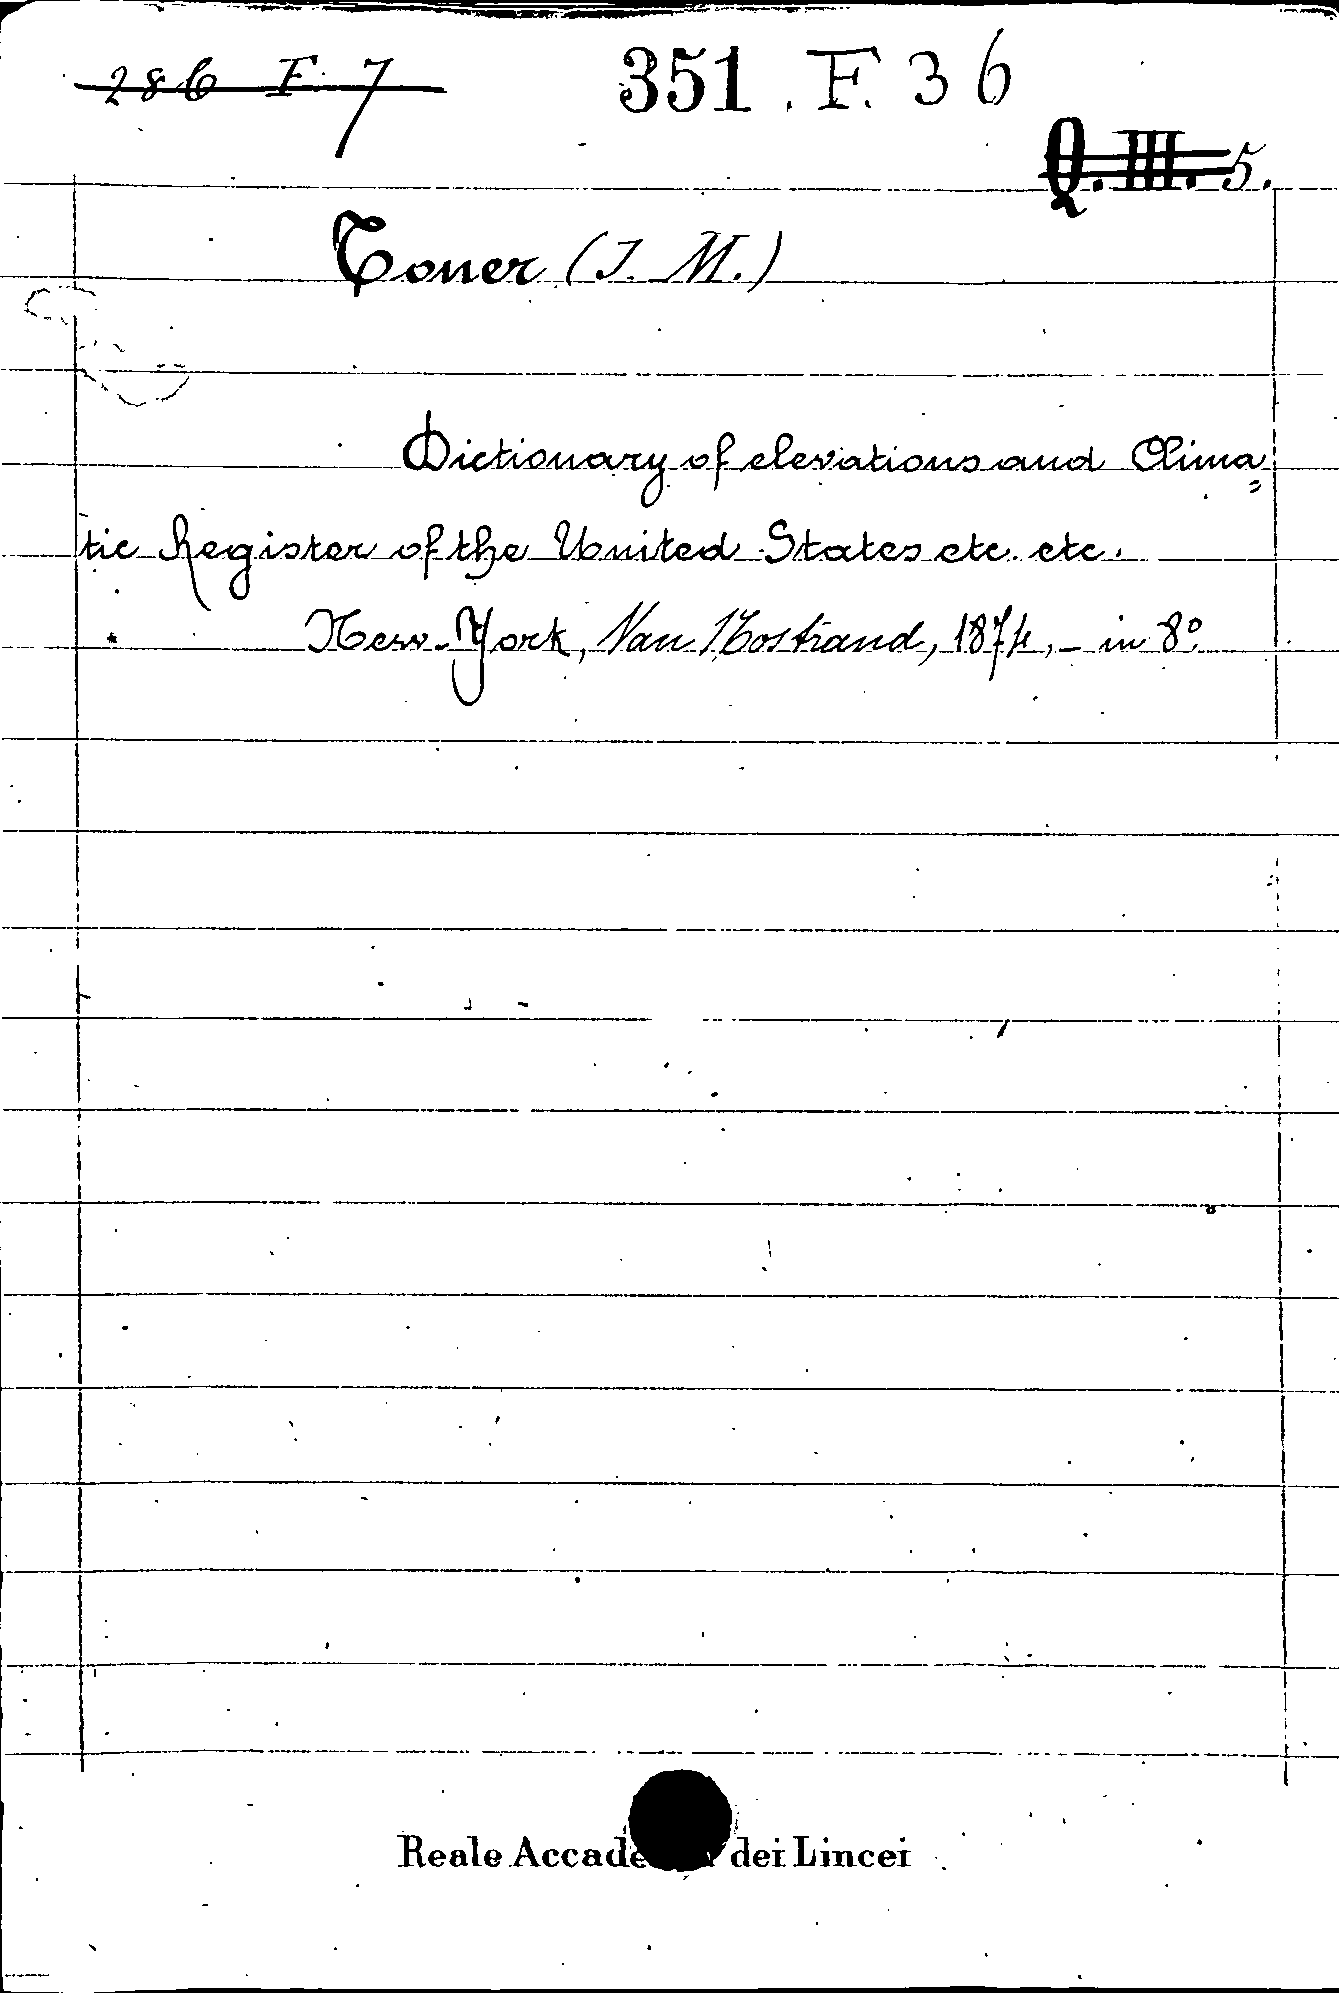 286 F. 7 351. F. 36
Q. III. 5.
Toner (J. M.)
Dictionary of elevations and Clima=
tic Register of the United States etc. etc.
New-York, Van Nostrand, 1874, - in 8º.
Reale Accade dei Lincei